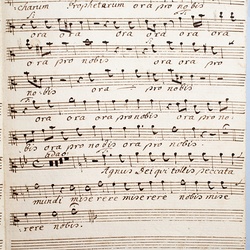 tharum Prophetarum ora pro nobis
ora ora ora ora ora ora
ora pro nobis ora pro no
bis ora pro nobis
ora ora ora pro nobis ora pro no.
bis ora pro nobis ora pro nobis.
adagio
Agnus Dei qui tollis peccata
mundi miserere miserere nobis mise
rere nobis.